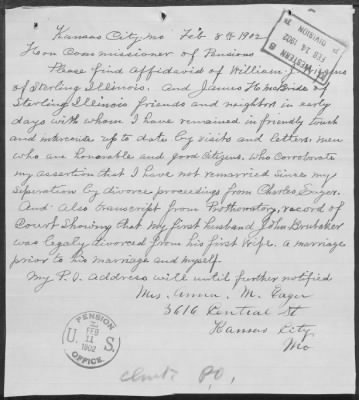 Kansas City Mo Feb 8th 1902
Hon Commissioner of Pensions
Please find Affidavid of William J.
of Sterling Illinois. And James H. McBride of
Sterling Illinois friends and neighbors in early
days with whom I have remained in friendly touch
and intercourse up to date by visits and letters. men
who are honorable and good citizens. Who corroborate
my assertion that I have not remarried since my
seperation by divorce proceedings from Charles Eager.
And Also transcript from Prothonotary, record of
Court Showing that my first husband John Brubaker
was legaly divorced from his first Wife. A marriage
prior to his marriage and myself.
My P.O. Address will until further notified
Mrs. Anna M. Eager
3616 Central St
Kansas City
Mo
WESTERN
FEB 14 1902
DIVISION
PENSION
FEB
11
1902
U.S.
OFFICE.
P.O.